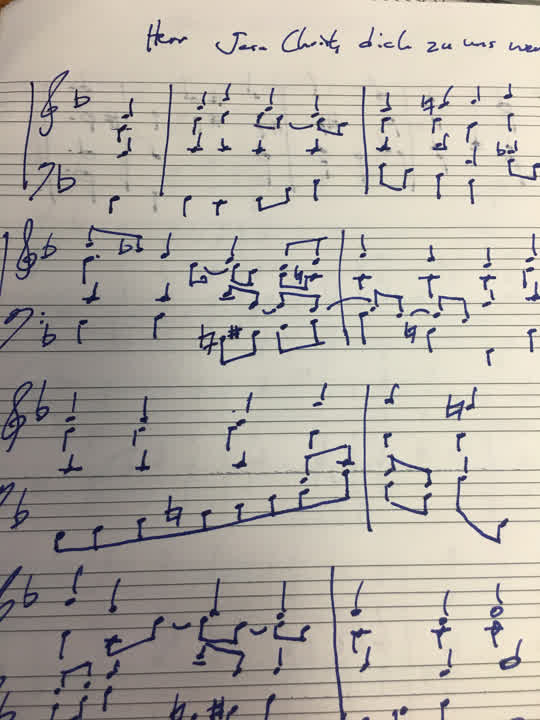 Herr Jesu Christ, dich zu uns wen